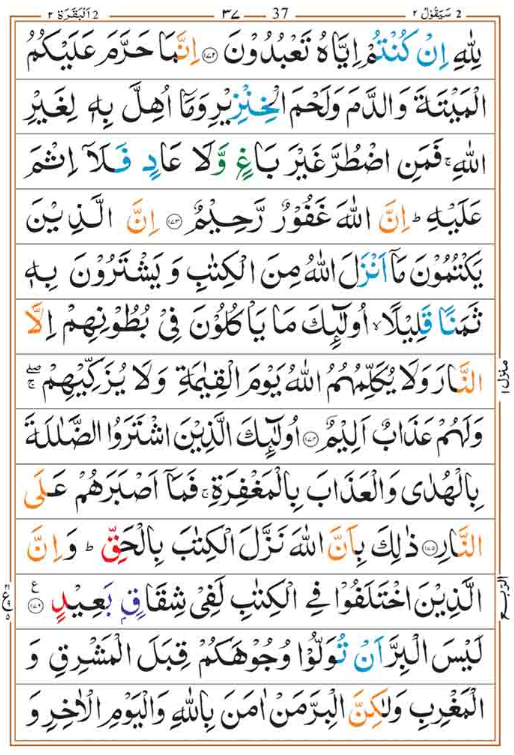 سَيَقُوْلُ ٢ 2 37 ٣٧ اَلْبَقَرَة ٢ 2
لِلّٰهِ اِنْ كُنْتُمْ اِيَّاهُ تَعْبُدُوْنَ ﴿١٧٢﴾ اِنَّمَا حَرَّمَ عَلَيْكُمُ
الْمَيْتَةَ وَالدَّمَ وَلَحْمَ الْخِنْزِيْرِ وَمَآ اُهِلَّ بِهٖ لِغَيْرِ
اللّٰهِ ۚ فَمَنِ اضْطُرَّ غَيْرَ بَاغٍ وَّلَا عَادٍ فَلَآ اِثْمَ
عَلَيْهِ ؕ اِنَّ اللّٰهَ غَفُوْرٌ رَّحِيْمٌ ﴿١٧٣﴾ اِنَّ الَّذِيْنَ
يَكْتُمُوْنَ مَآ اَنْزَلَ اللّٰهُ مِنَ الْكِتٰبِ وَيَشْتَرُوْنَ بِهٖ
ثَمَنًا قَلِيْلًا ۙ اُولٰٓئِكَ مَا يَاْكُلُوْنَ فِيْ بُطُوْنِهِمْ اِلَّا
النَّارَ وَلَا يُكَلِّمُهُمُ اللّٰهُ يَوْمَ الْقِيٰمَةِ وَلَا يُزَكِّيْهِمْ ۖۚ
وَلَهُمْ عَذَابٌ اَلِيْمٌ ﴿١٧٤﴾ اُولٰٓئِكَ الَّذِيْنَ اشْتَرَوُا الضَّلٰلَةَ
بِالْهُدٰى وَالْعَذَابَ بِالْمَغْفِرَةِ ۚ فَمَآ اَصْبَرَهُمْ عَلَى
النَّارِ ﴿١٧٥﴾ ذٰلِكَ بِاَنَّ اللّٰهَ نَزَّلَ الْكِتٰبَ بِالْحَقِّ ؕ وَاِنَّ
الَّذِيْنَ اخْتَلَفُوْا فِي الْكِتٰبِ لَفِيْ شِقَاقٍۭ بَعِيْدٍ ﴿١٧٦﴾ ع
لَيْسَ الْبِرَّ اَنْ تُوَلُّوْا وُجُوْهَكُمْ قِبَلَ الْمَشْرِقِ وَ
الْمَغْرِبِ وَلٰكِنَّ الْبِرَّ مَنْ اٰمَنَ بِاللّٰهِ وَالْيَوْمِ الْاٰخِرِ وَ
منزل ١
الربع